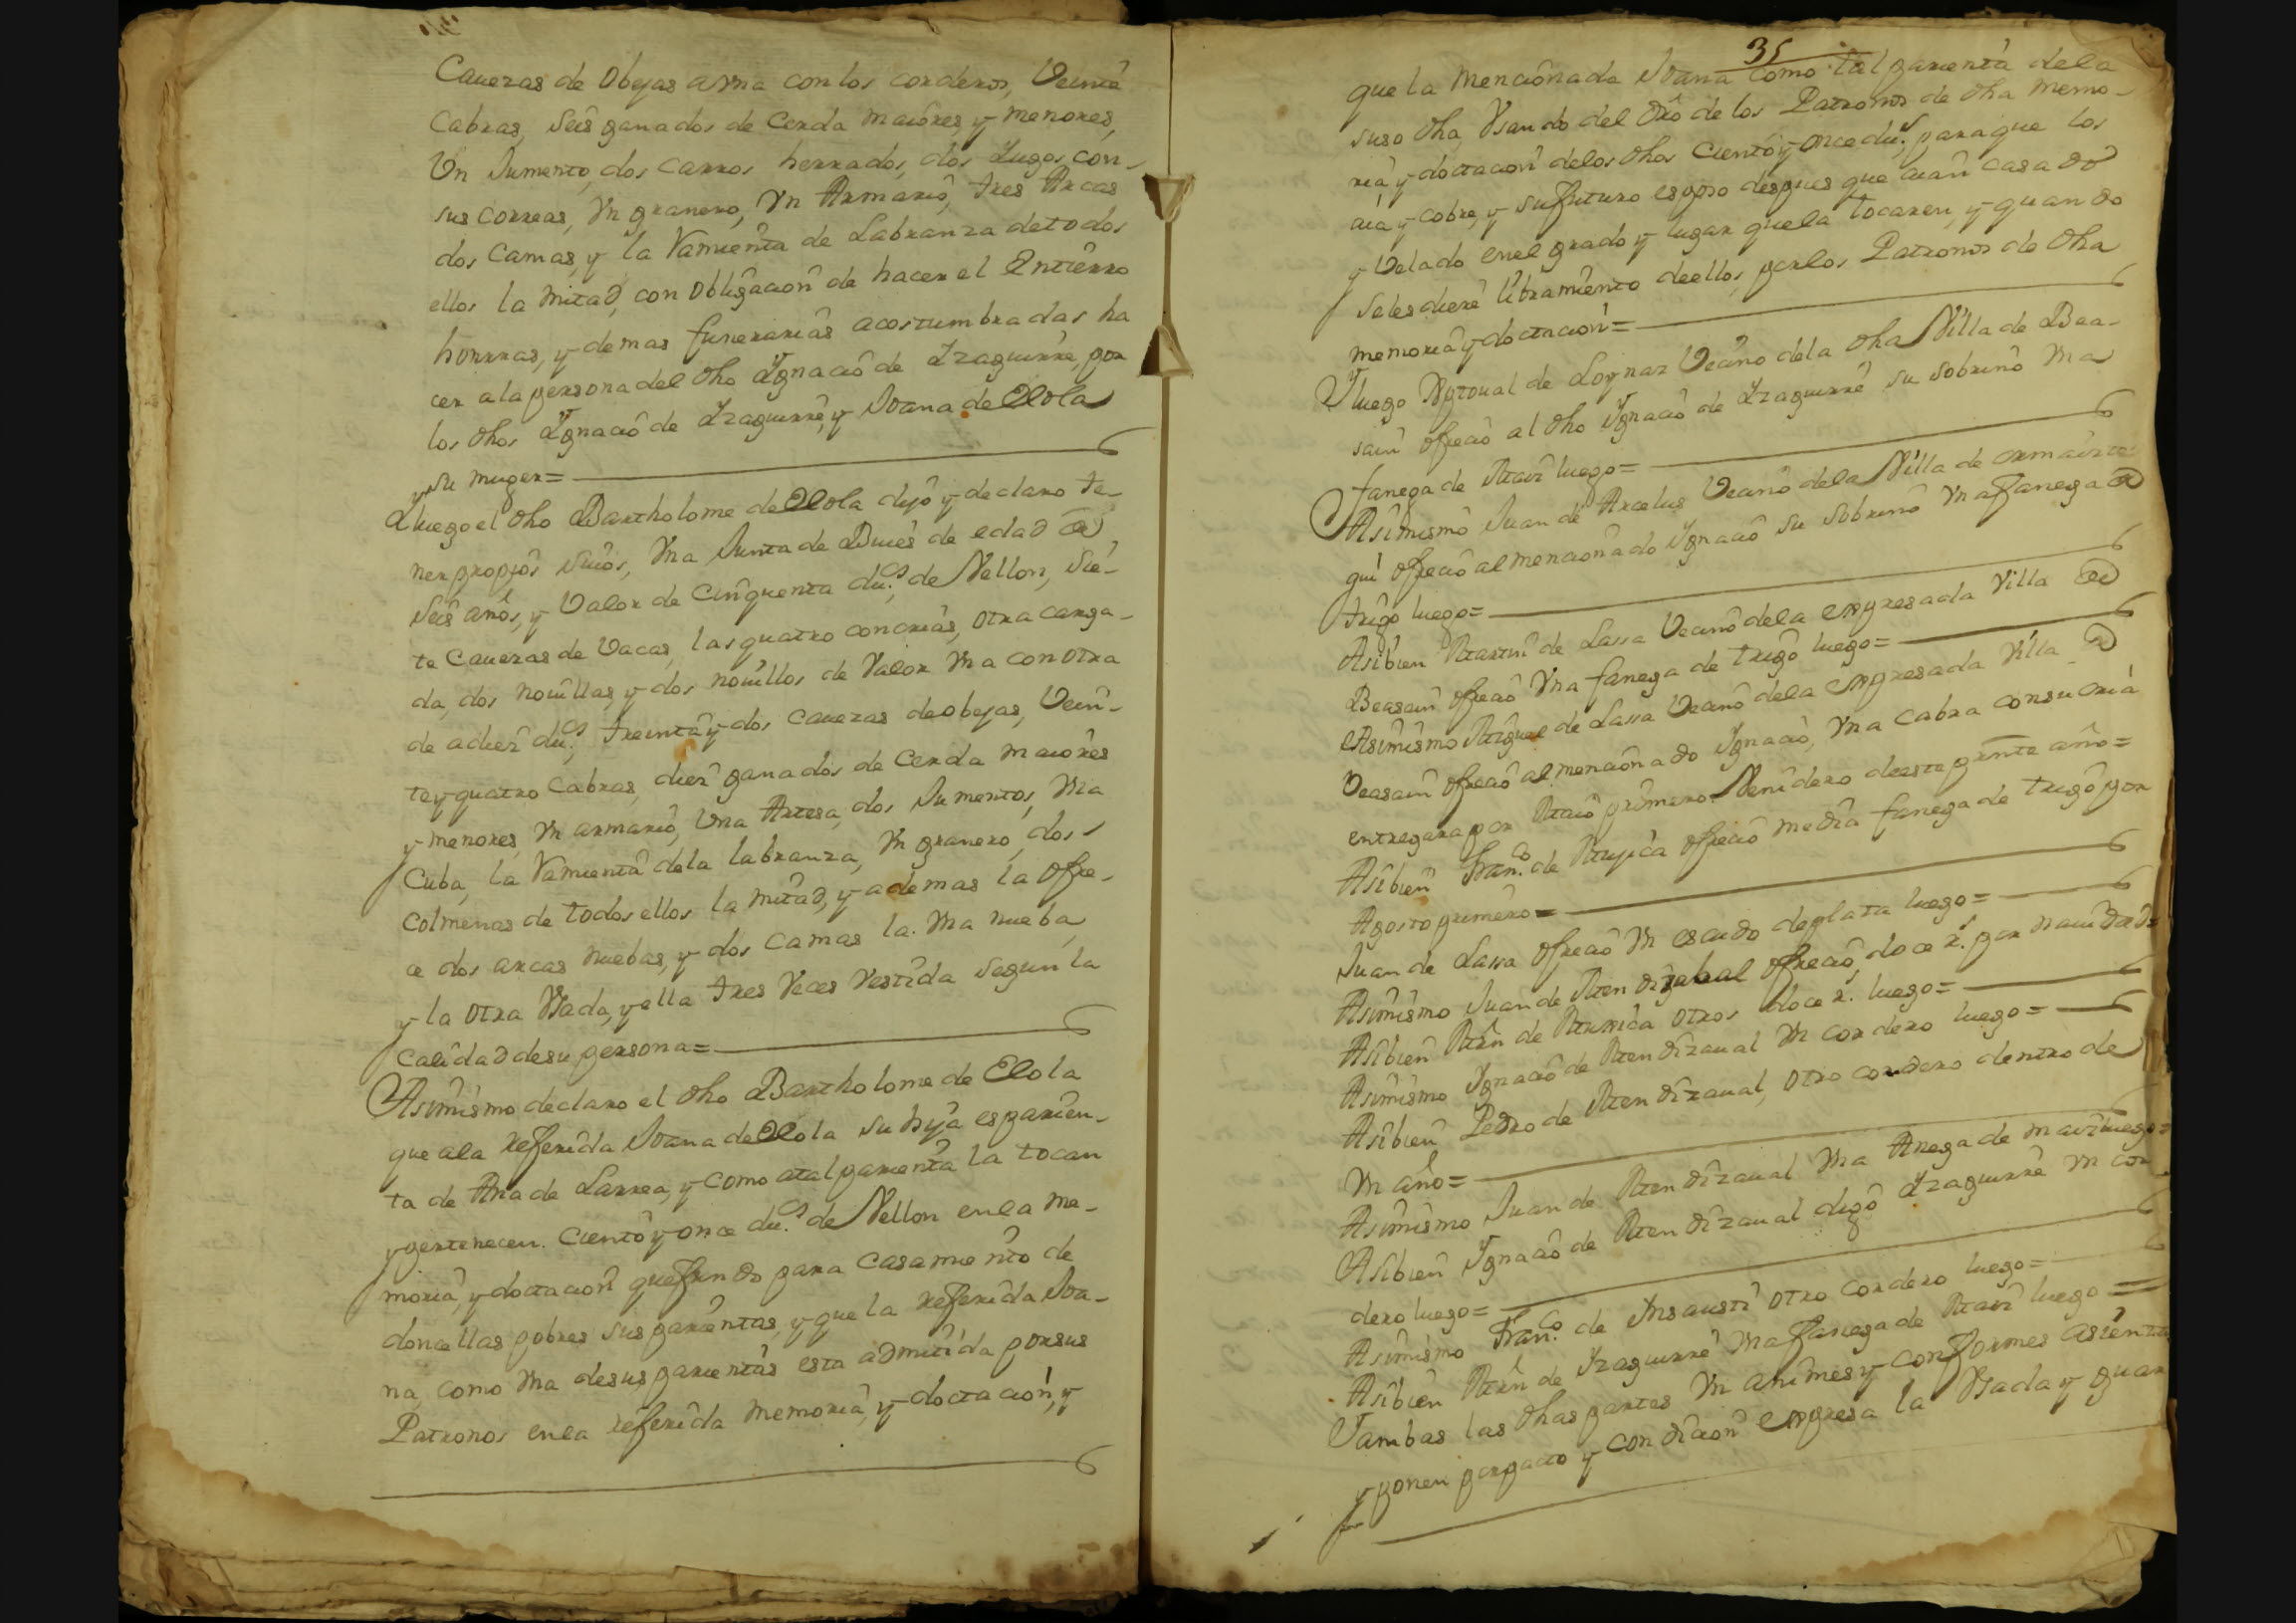 Cauezas de Obejas asna con los corderos, Veinte
Cabras, Seis ganados de Cerda maiores, y menores,
Vn Jumento, dos carros herrados, dos Iugos con
sus correas, Vn granero, Vn Armario, tres Arcas
dos Camas, y la Vamienta de Labranza de todos
ellos la mitad, con obligacion de hacer el Entierro
honrras, y demas funerarias acostumbradas ha
cer a la persona del dho Ygnacio de Yzaguirre, por
los dhos Ygnacio de Yzaguirre, y Joana de Elola
su muger=
Y luego el dho Bartholome de Elola dijo y declaro te-
ner propios suios, Vna Junta de Buies de edad de
Seis años, y Valor de Cinquenta du.s de Vellon, Sie-
te Cauezas de Vacas, las quatro con crias, otra carga-
da, dos nouillas, y dos nouillos de Valor Vna con otra
de a diez du.s, treinta y dos cauezas de obejas, Vein-
te y quatro Cabras, diez ganados de Cerda maiores
y menores, Vn armario, Vna Artesa, dos Jumentos, Vna
Cuba, la Vamienta de la labranza, Vn granero, dos
Colmenas de todos ellos la mitad, y ademas la ofre-
ce dos arcas nuebas, y dos camas la Vna nueba,
y la otra Vsada, y ella tres Veces Vestida segun la
calidad de su persona=
Asimismo declaro el dho Bartholome de Elola
que a la referida Joana de Elola su hija es parien-
ta de Ana de Larrea, y como a tal parienta la tocan
y pertenecen. Ciento y once du.s de Vellon en la me-
moria, y dotacion que fundo para casamiento de
doncellas pobres sus parientas, y que la referida Joa-
na, como Vna de sus parientas esta admitida por sus
Patronos en la referida memoria, y dotacion, y
35
que la mencionada Joana como tal parienta de la
suso dha, Vsando del dro de los Patronos de dha memo-
ria y dotacion de los dhos ciento y once du.s, para que los
aia y cobre, y su futuro esposo despues que aian casado
y Velado en el grado y lugar que la tocaren, y quando
se les diere libramiento de ellos, por los Patronos de dha
memoria y dotacion=
Y luego de Loynaz Vecino de la dha Villa de Bea-
sain ofrecio al dho Ygnacio de Yzaguirre su sobrino Vna
fanega de Maiz luego=
Asimismo Juan de Arcelus Vecino de la Villa de ormaizte-
gui ofrecio al mencionado Ygnacio su sobrino Vna fanega de
trigo luego=
Asibien Martin de Lassa Vecino de la expresada Villa de
Beasain ofrecio Vna fanega de trigo luego=
Asimismo Miguel de Lassa Vecino de la expresada Villa de
Veasain ofrecio al mencionado Ygnacio, Vna cabra con su cria
entregara por Maio primero Venidero de este pnte año=
Asibien Fran.co de Mujica ofrecio media fanega de trigo por
Agosto primero=
Juan de Lassa ofrecio Vn escudo de plata luego=
Asimismo Juan de Mendizabal ofrecio, doce r.s por nauidad=
Asibien Mrn de Munica otros doce r. luego=
Asimismo Ygnacio de Mendizaual Vn cordero luego=
Asibien Pedro de Mendizaual, otro cordero dentro de
Vn año=
Asimismo Juan de Mendizaual Vna Anega de maiz luego=
Asibien Ygnacio de Mendizaual digo Yzaguirre Vn cor
dero luego=
Asimismo Fran.co de Ynsausti otro cordero luego=
Asibien Mrn de Yzaguirre Vna fanega de Maiz luego=
Y ambas las dhas partes Vn animes y conformes asienta
y ponen por pacto y condicion expresa la Vsada y guar